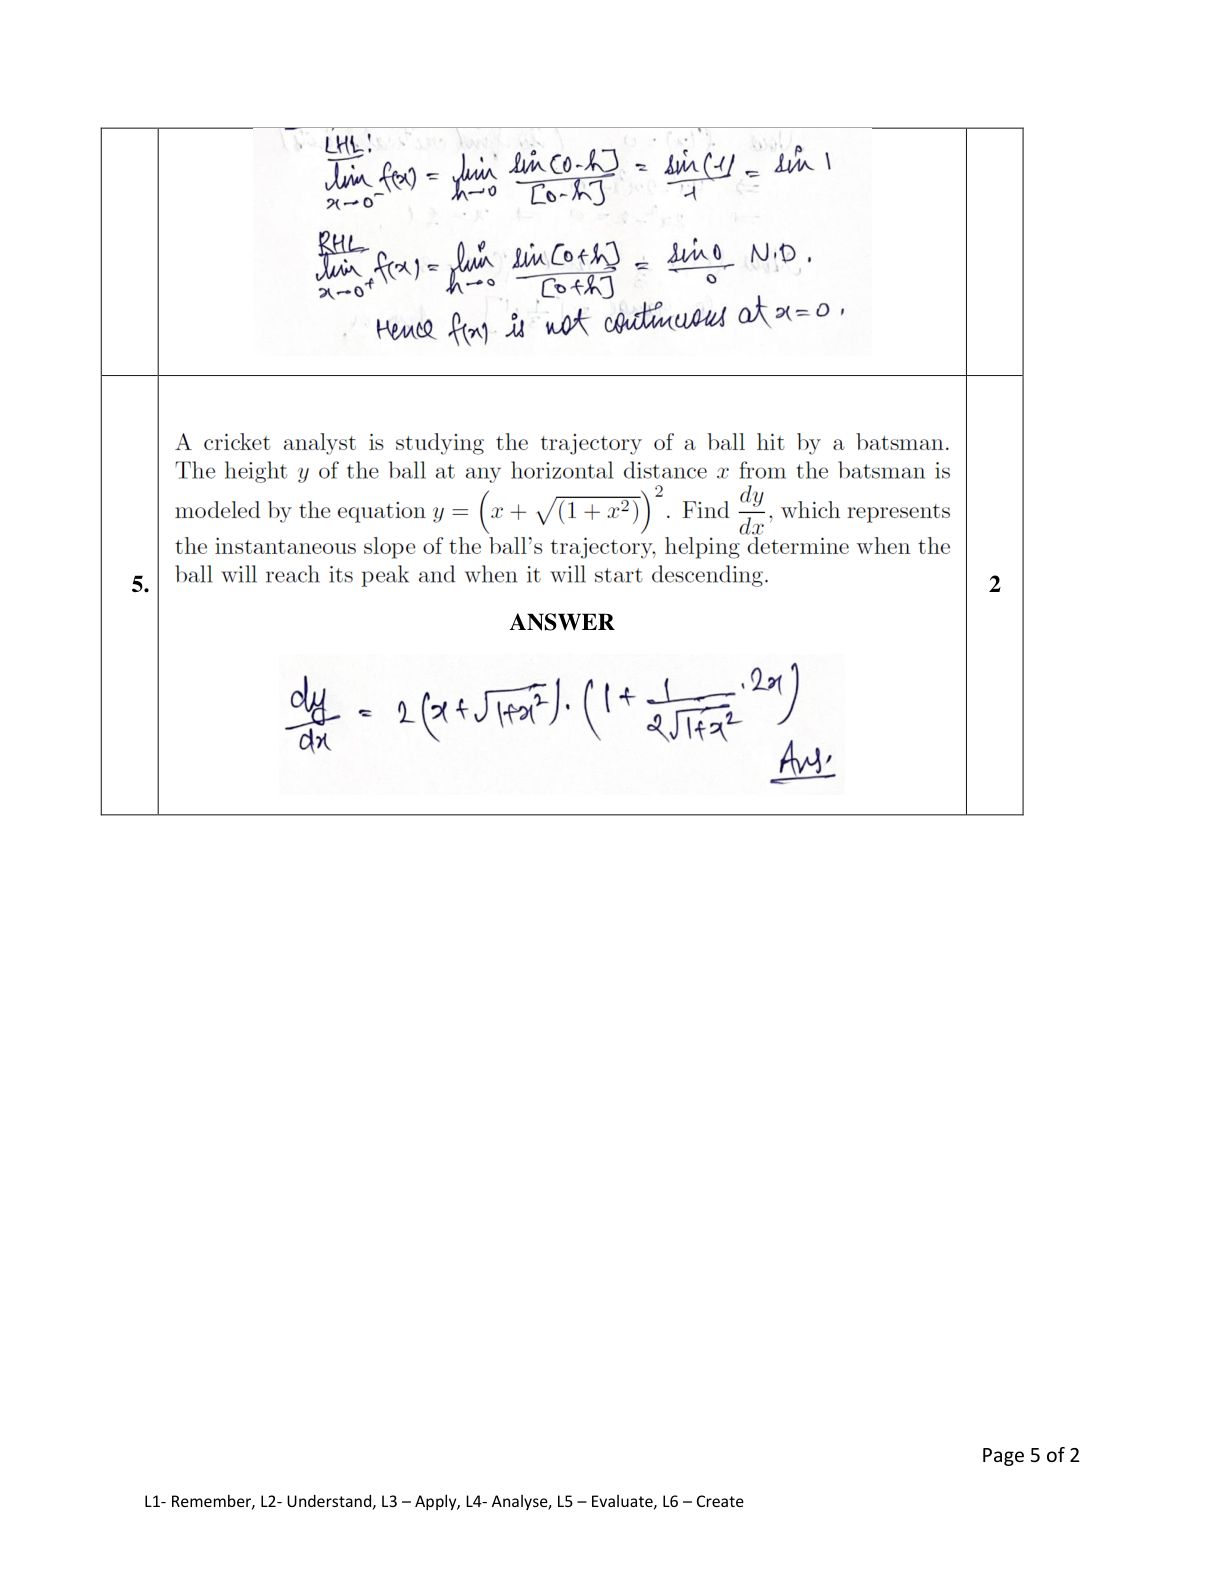 LHL:
lim x→0⁻ f(x) = lim h→0 sin[0-h] / [0-h] = sin(-1) / -1 = sin 1
RHL
lim x→0⁺ f(x) = lim h→0 sin[0+h] / [0+h] = sin 0 / 0 N.D.
Hence f(x) is not continuous at x=0.
A cricket analyst is studying the trajectory of a ball hit by a batsman.
The height y of the ball at any horizontal distance x from the batsman is
modeled by the equation y = (x + √(1 + x²))². Find dy/dx, which represents
the instantaneous slope of the ball's trajectory, helping determine when the
ball will reach its peak and when it will start descending.
5.
2
ANSWER
dy/dx = 2(x+√1+x²).(1+ 1/2√1+x² .2x)
Ans.
Page 5 of 2
L1- Remember, L2- Understand, L3 – Apply, L4- Analyse, L5 – Evaluate, L6 – Create